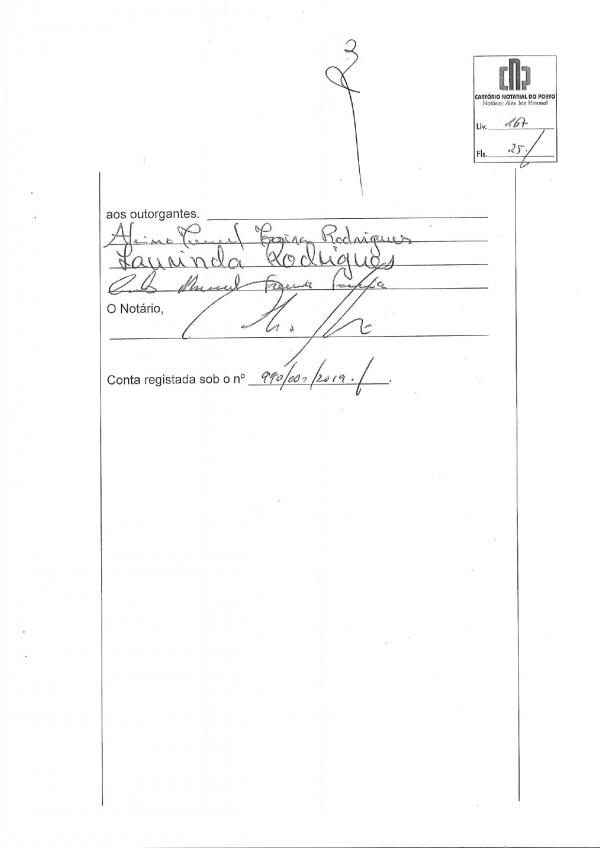 3
CNP
CARTÓRIO NOTARIAL DO PORTO
Notário: Alex Jan Himmel
Liv. 167
Fls. 25
aos outorgantes.
Rodrigues
Laurinda Rodrigues
Manuel
O Notário,
Conta registada sob o nº 990/001/2019.